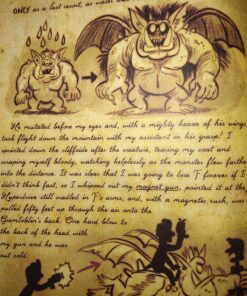 ONLY as a last resort, as water was
He mutated before my eyes and, with a mighty heave of his wings,
took flight down the mountain with my assistant in his grasp! I
sprinted down the cliffside after the creature, tearing my coat and
scraping myself bloody, watching helplessly as the monster flew farther
into the distance. It was clear that I was going to lose F forever if I
didn't think fast, so I whipped out my magnet gun, pointed it at the
Hyperdrive still cradled in F's arms, and, with a magnetic rush, was
pulled fifty feet up through the air onto the
Gremloblin's back. One hard blow to
the back of the head with
my gun and he was
out cold.